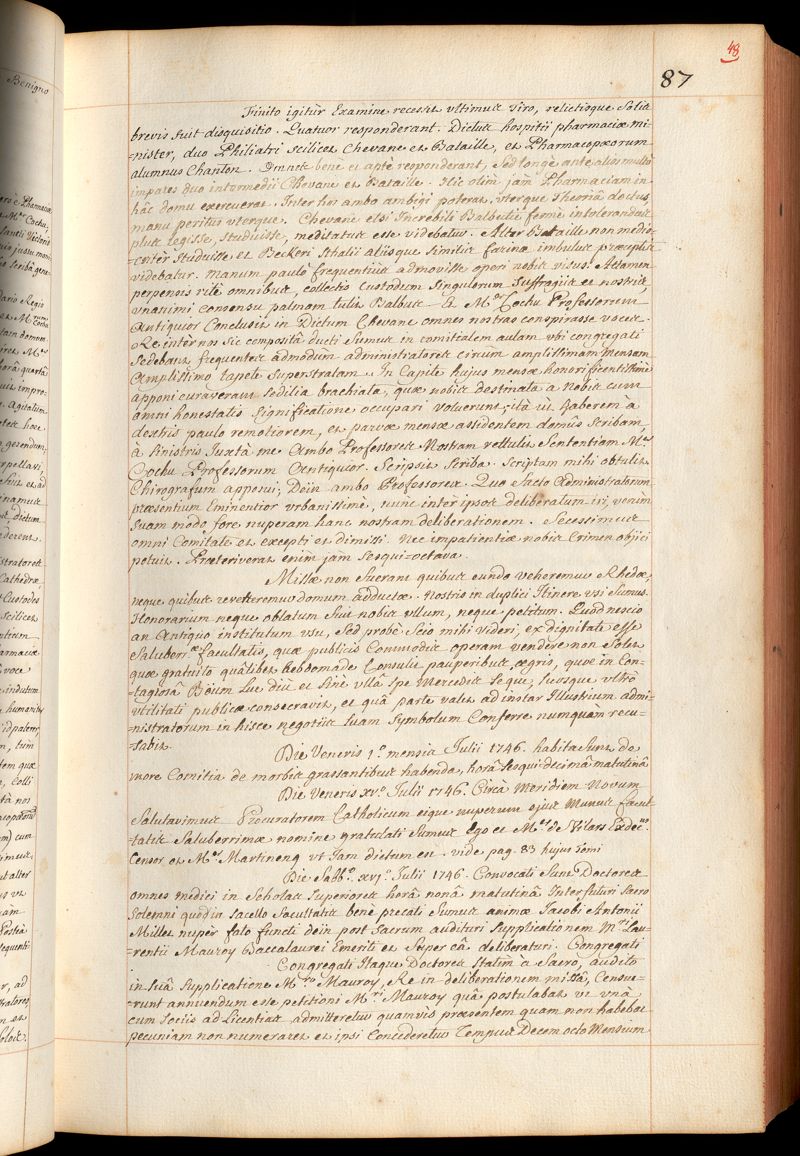 48
87
Benigno
Finito igitur Examine recessit ultimus viro, relictisque Solis
brevis fuit disquisitio. Quatuor responderant. Dictus hospitii pharmaciæ mi-
-nister, duo Philiatri scilicet Chevane et Bataille, et Pharmacopæorum
alumnus Chanton. Omnes benè et aptè responderant, Sed longè ante alios multò
impares duo intermedii Chevane et Bataille. Hic olim jam Pharmaciam in
hâc domu exercuerat. Inter hos ambo ambigi poterat, uterque theoriâ doctus,
manu peritus uterque. Chevane etsi Incredibili Balbutie fermè intolerandus
plus legisse, studuisse, meditatus esse videbatur. Alter Bataille non medio-
criter Studuisse et Beckeri Sthalii aliisque similis farinæ imbutus præceptis
videbatur. Manum paulò frequentius admovisse operi nobis visus. Attamen
perpensis ritè omnibus, collectis Custodum singulorum Suffragiis et nostris,
unanimi consensu palmam tulit Balbus. Et M.us Cochu Professorum
Antiquior Conclusit in Dictum Chevane omnes nostras conspirasse voces.
Re inter nos sic compositâ ducti Sumus in comitialem aulam ubi congregati
Sedebant frequentes admodum administratores circum amplissimam Mensam
Amplissimo tapete Superstratam. In Capite hujus mensæ honorificentissimè
apponi curaverant Sedilia brachiata, quæ nobis destinata a nobis cum
omni honestatis significatione occupari voluerunt, ità ùt haberem à
dextris paulo remotiorem, et parvæ mensæ assidentem domûs Scribam,
à Sinistris Juxtà me Ambo Professores Nostram rettulit Sententiam M.us
Cochu Professorum Antiquior. Scripsit Scriba. Scriptam mihi obtulit
Chirografum apposui, Dein ambo Professores. Quo facto Administratorum
præsentium Eminentior urbanissimè, nunc inter ipsos deliberatum iri, verùm
Suam modo, fore nuperam hanc nostram deliberationem. Secessimus
omni Comitate et excepti et dimissi. Nec impatientiæ nobis Crimen objici
potuit. Præteriverat enim jàm Sesqui-octava.
Missæ non fuerant quibus eundo veheremur Rhedæ,
neque quibus reveheremur domum adductæ. Nostris in duplici Itinere usi Sumus.
Honorarium neque oblatum fuit nobis ullum, neque petitum. Quid nescio
an Antiquo instituto usu, Sed probè Scio mihi videri, ex dignitate esse
Saluberr.æ facultatis, quæ publicis Commodis operam vendere non Solet
quæ gratuito quâlibet hebdomade Consulit pauperibus ægris, quæ in Con-
-tagiosâ Boum Lue diù et Sinè ullâ Spe Mercedis Seque, Suosque ultrò
utilitati publicæ consecravit, et quâ parte valet ad instar Illustrium admi-
nistratorum in hisce negotiis Suam Symbolum Conferre numquàm recu-
-sabit.
Die Veneris 1.º mensis Julii 1746. habita Sunt de
more Comitia de morbis grassantibus habenda, horâ Sesqui-decimâ matutinâ
Die Veneris XV.º Julii 1746. Circà Meridiem Novum
Salutavimus Procuratorem Catholicum eique nuperum ejus Munus facul-
tatis Saluberrimæ nomine gratulati Sumus Ego et M.us de Vilars Exdec.us
Censor et M.us Martinenq ut Jam dictum est. vide pag. 83 hujus Temi
Die Sabb.º XVI.º Julii 1746. Convocati Sunt Doctores
omnes medici in Scholas Superiores horâ nonâ matutinâ Interfuturi Sacro
Solemni quodin sacello facultatis benè precati Sumus animæ Jacobi Antonii
Millet nuper fato functi dein post Sacrum audituri Supplicationem M.ri Lau-
-rentii Mauroy Baccalaurei Emeriti et Super eâ deliberaturi. Congregati
Congregati Itaque Doctores Statim à Sacro, audito
in Suâ Supplicatione M.ro Mauroy, Re in deliberationem missâ, Censue-
-runt annuendum esse petitioni M.ri Mauroy quâ postulabat ut unà
cum Sociis ad Licentias admitteretur quamvis præsentem quam non habebat
pecuniam non numeraret et ipsi Concederetur Tempus Decem octo Mensium